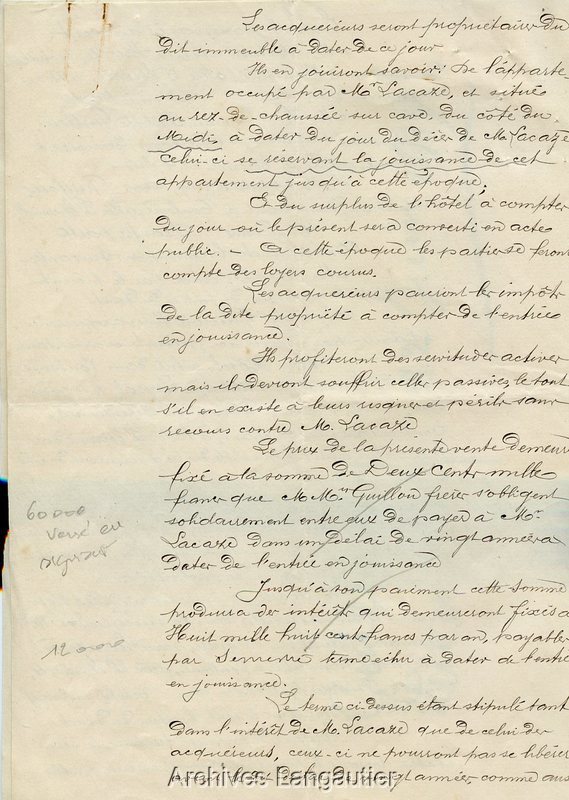 Les acquereurs seront propriétaires du
dit immeuble à dater de ce jour
Ils en jouiront savoir: De l'apparte-
ment occupé par Mr Lacaze, et situé
au rez-de-chaussée sur cave, du côté du
Midi, à dater du jour du décès de M. Lacaze
celui-ci se reservant la jouissance de cet
appartement jusqu'à cette époque;
Et du surplus de l'hôtel à compter
du jour où le présent sera converti en acte
public. - A cette époque les parties se feront
compte des loyers courus.
Les acquereurs paieront les impôts
de la dite propriété à compter de l'entrée
en jouissance.
Ils profiteront des servitudes actives
mais ils devront souffrir celles passives, le tout
s'il en existe à leurs risques et périls sans
recours contre M. Lacaze
Le prix de la présente vente demeure
fixé à la somme de Deux Cents mille
francs que MMrs Guillou frères s'obligent
solidairement entre eux de payer à Mr
Lacaze dans un délai de vingt années à
dater de l'entrée en jouissance
60 000
12 000
Jusqu'à son paiement cette somme
produira des intérêts qui demeureront fixés à
Huit mille huit cent francs par an, payables
par semestre terme échu à dater de l'entrée
en jouissance.
Le terme ci-dessus étant stipulé tant
dans l'intérêt de M. Lacaze que de celui des
acquéreurs, ceux-ci ne pourront pas se libérer
avant les vingt années, comme aus
Archives Langautier